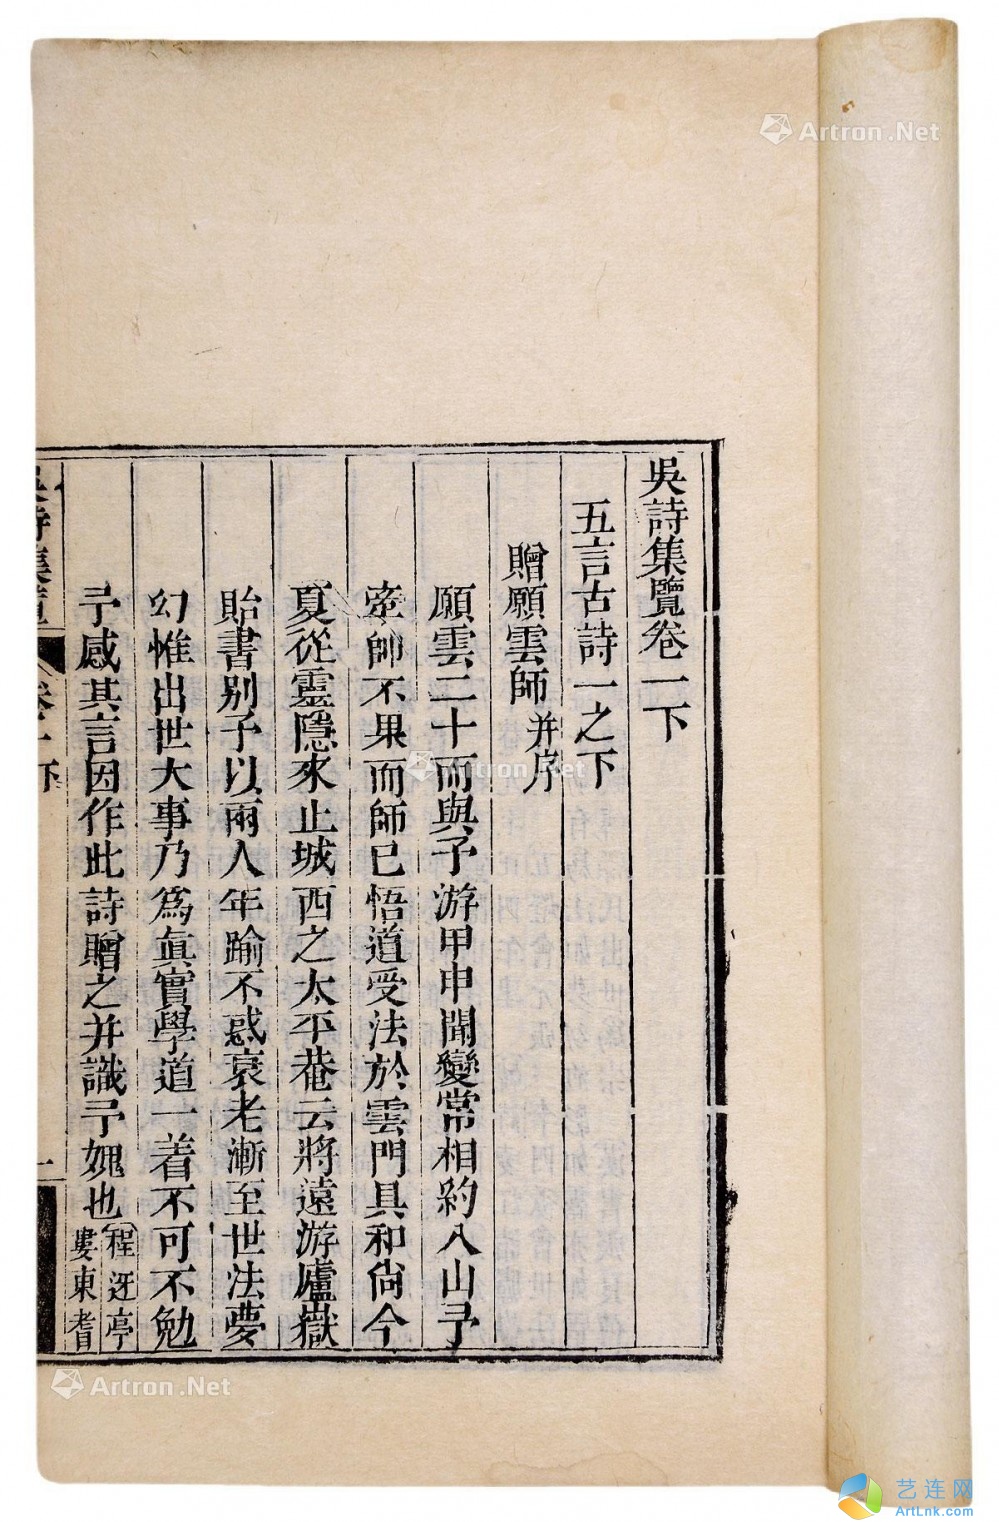 吳詩集覽卷一下
五言古詩一之下
贈願雲師并序
願雲二十而與予游甲申聞變常相約入山予
牽帥不果而師已悟道受法於雲門具和尚今
夏從靈隱來止城西之太平菴云將遠游廬嶽
貽書別予以兩人年踰不惑衰老漸至世法夢
幻惟出世大事乃爲眞實學道一着不可不勉
予感其言因作此詩贈之并識予媿也
程迓亭
婁東耆
吳詩集覽 卷一下 一
Artron.Net
Artron.Net
Artron.Net
艺连网
ArtLnk.com